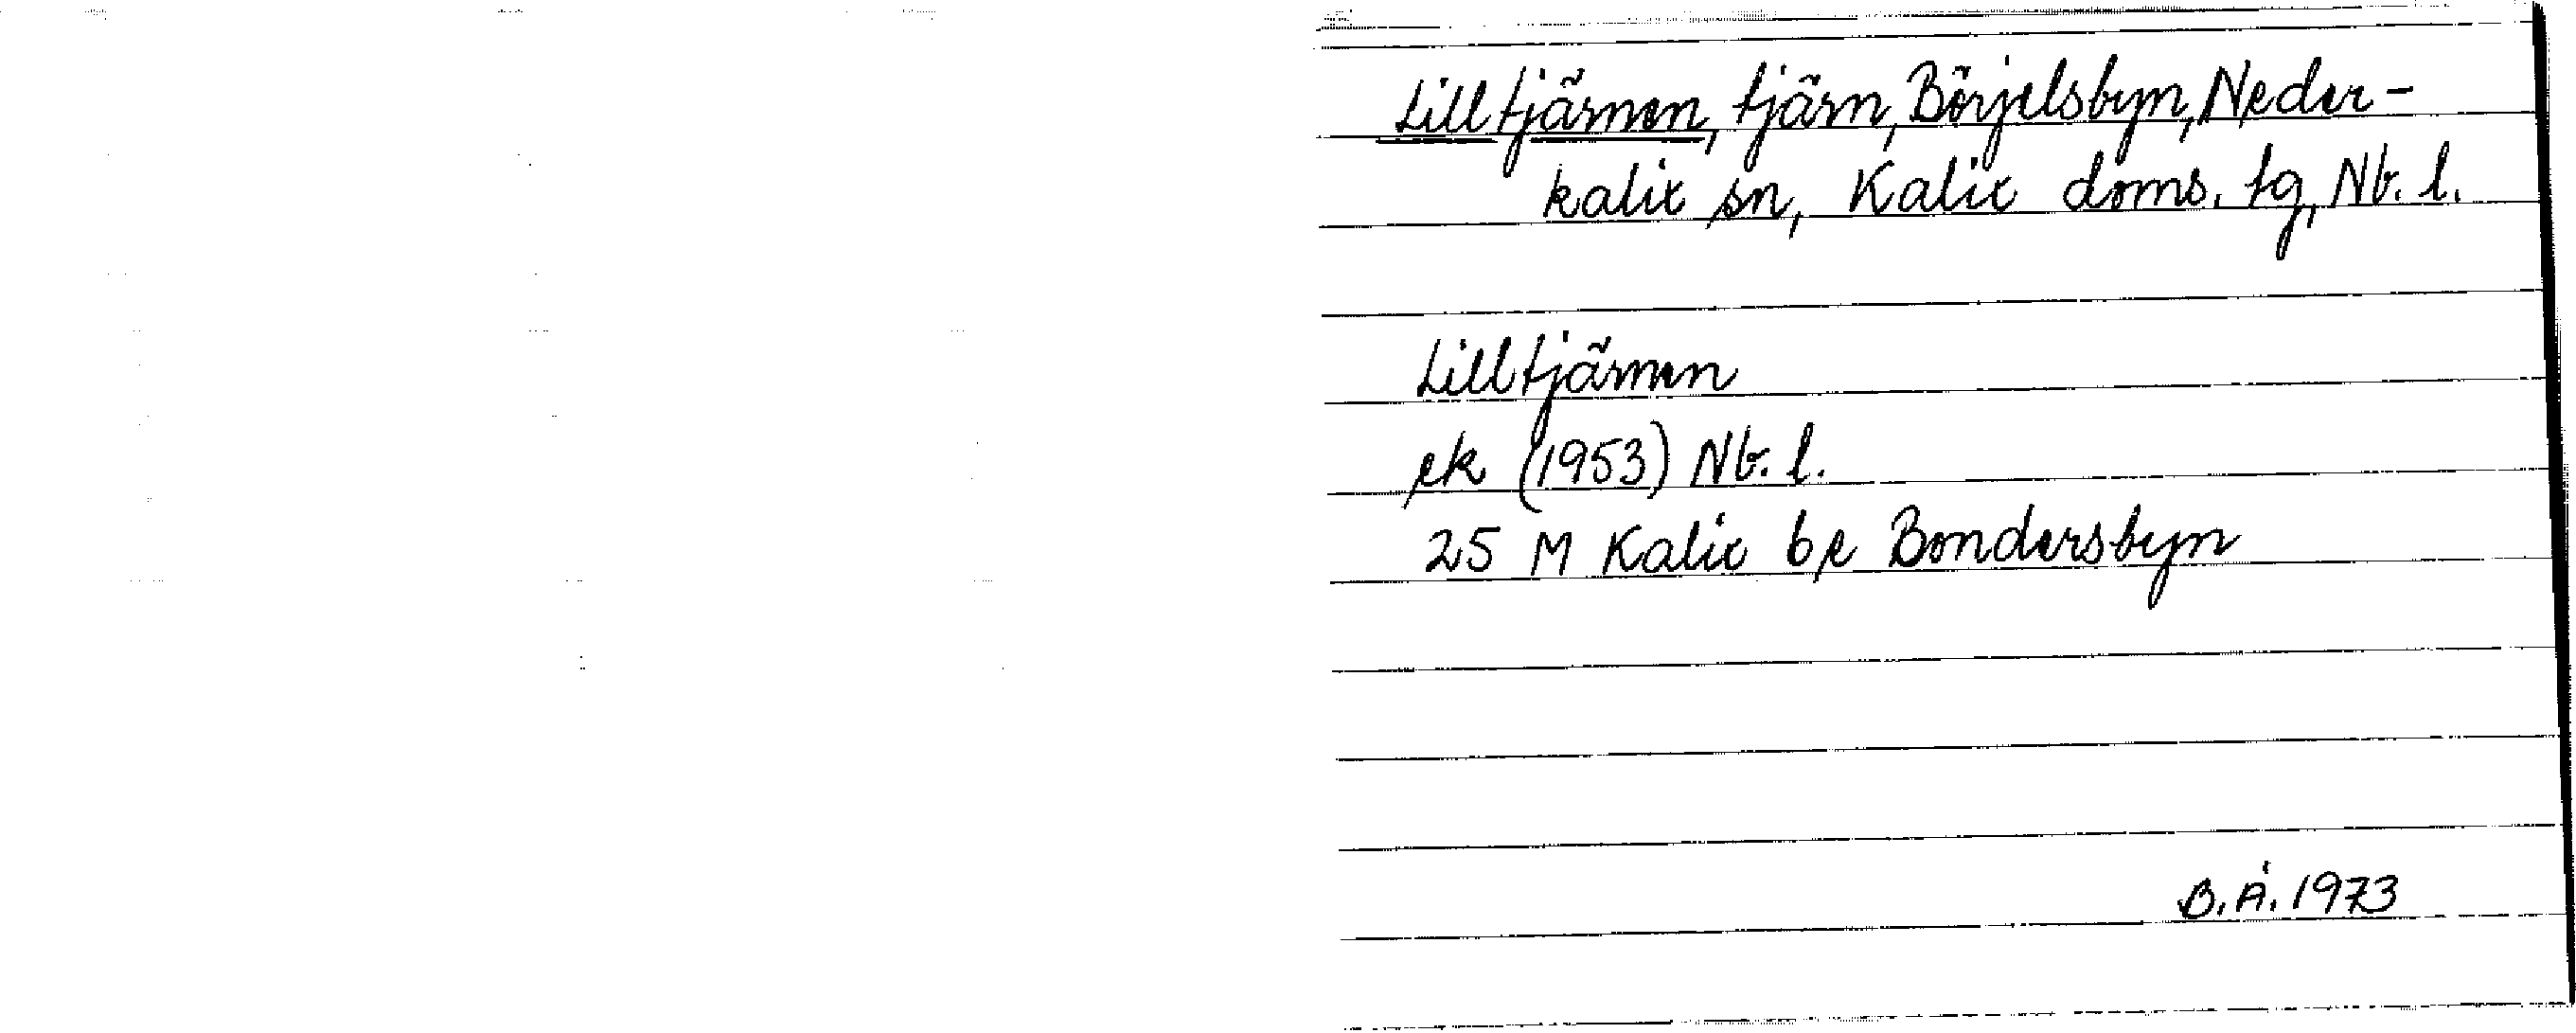 Lilltjärnen, tjärn, Börjelsbyn, Neder-
kalix sn, Kalix doms. tg, Nb. l.
Lilltjärnen
ek (1953) Nb. l.
25 M Kalix 6e Bondersbyn
B.Å. 1973